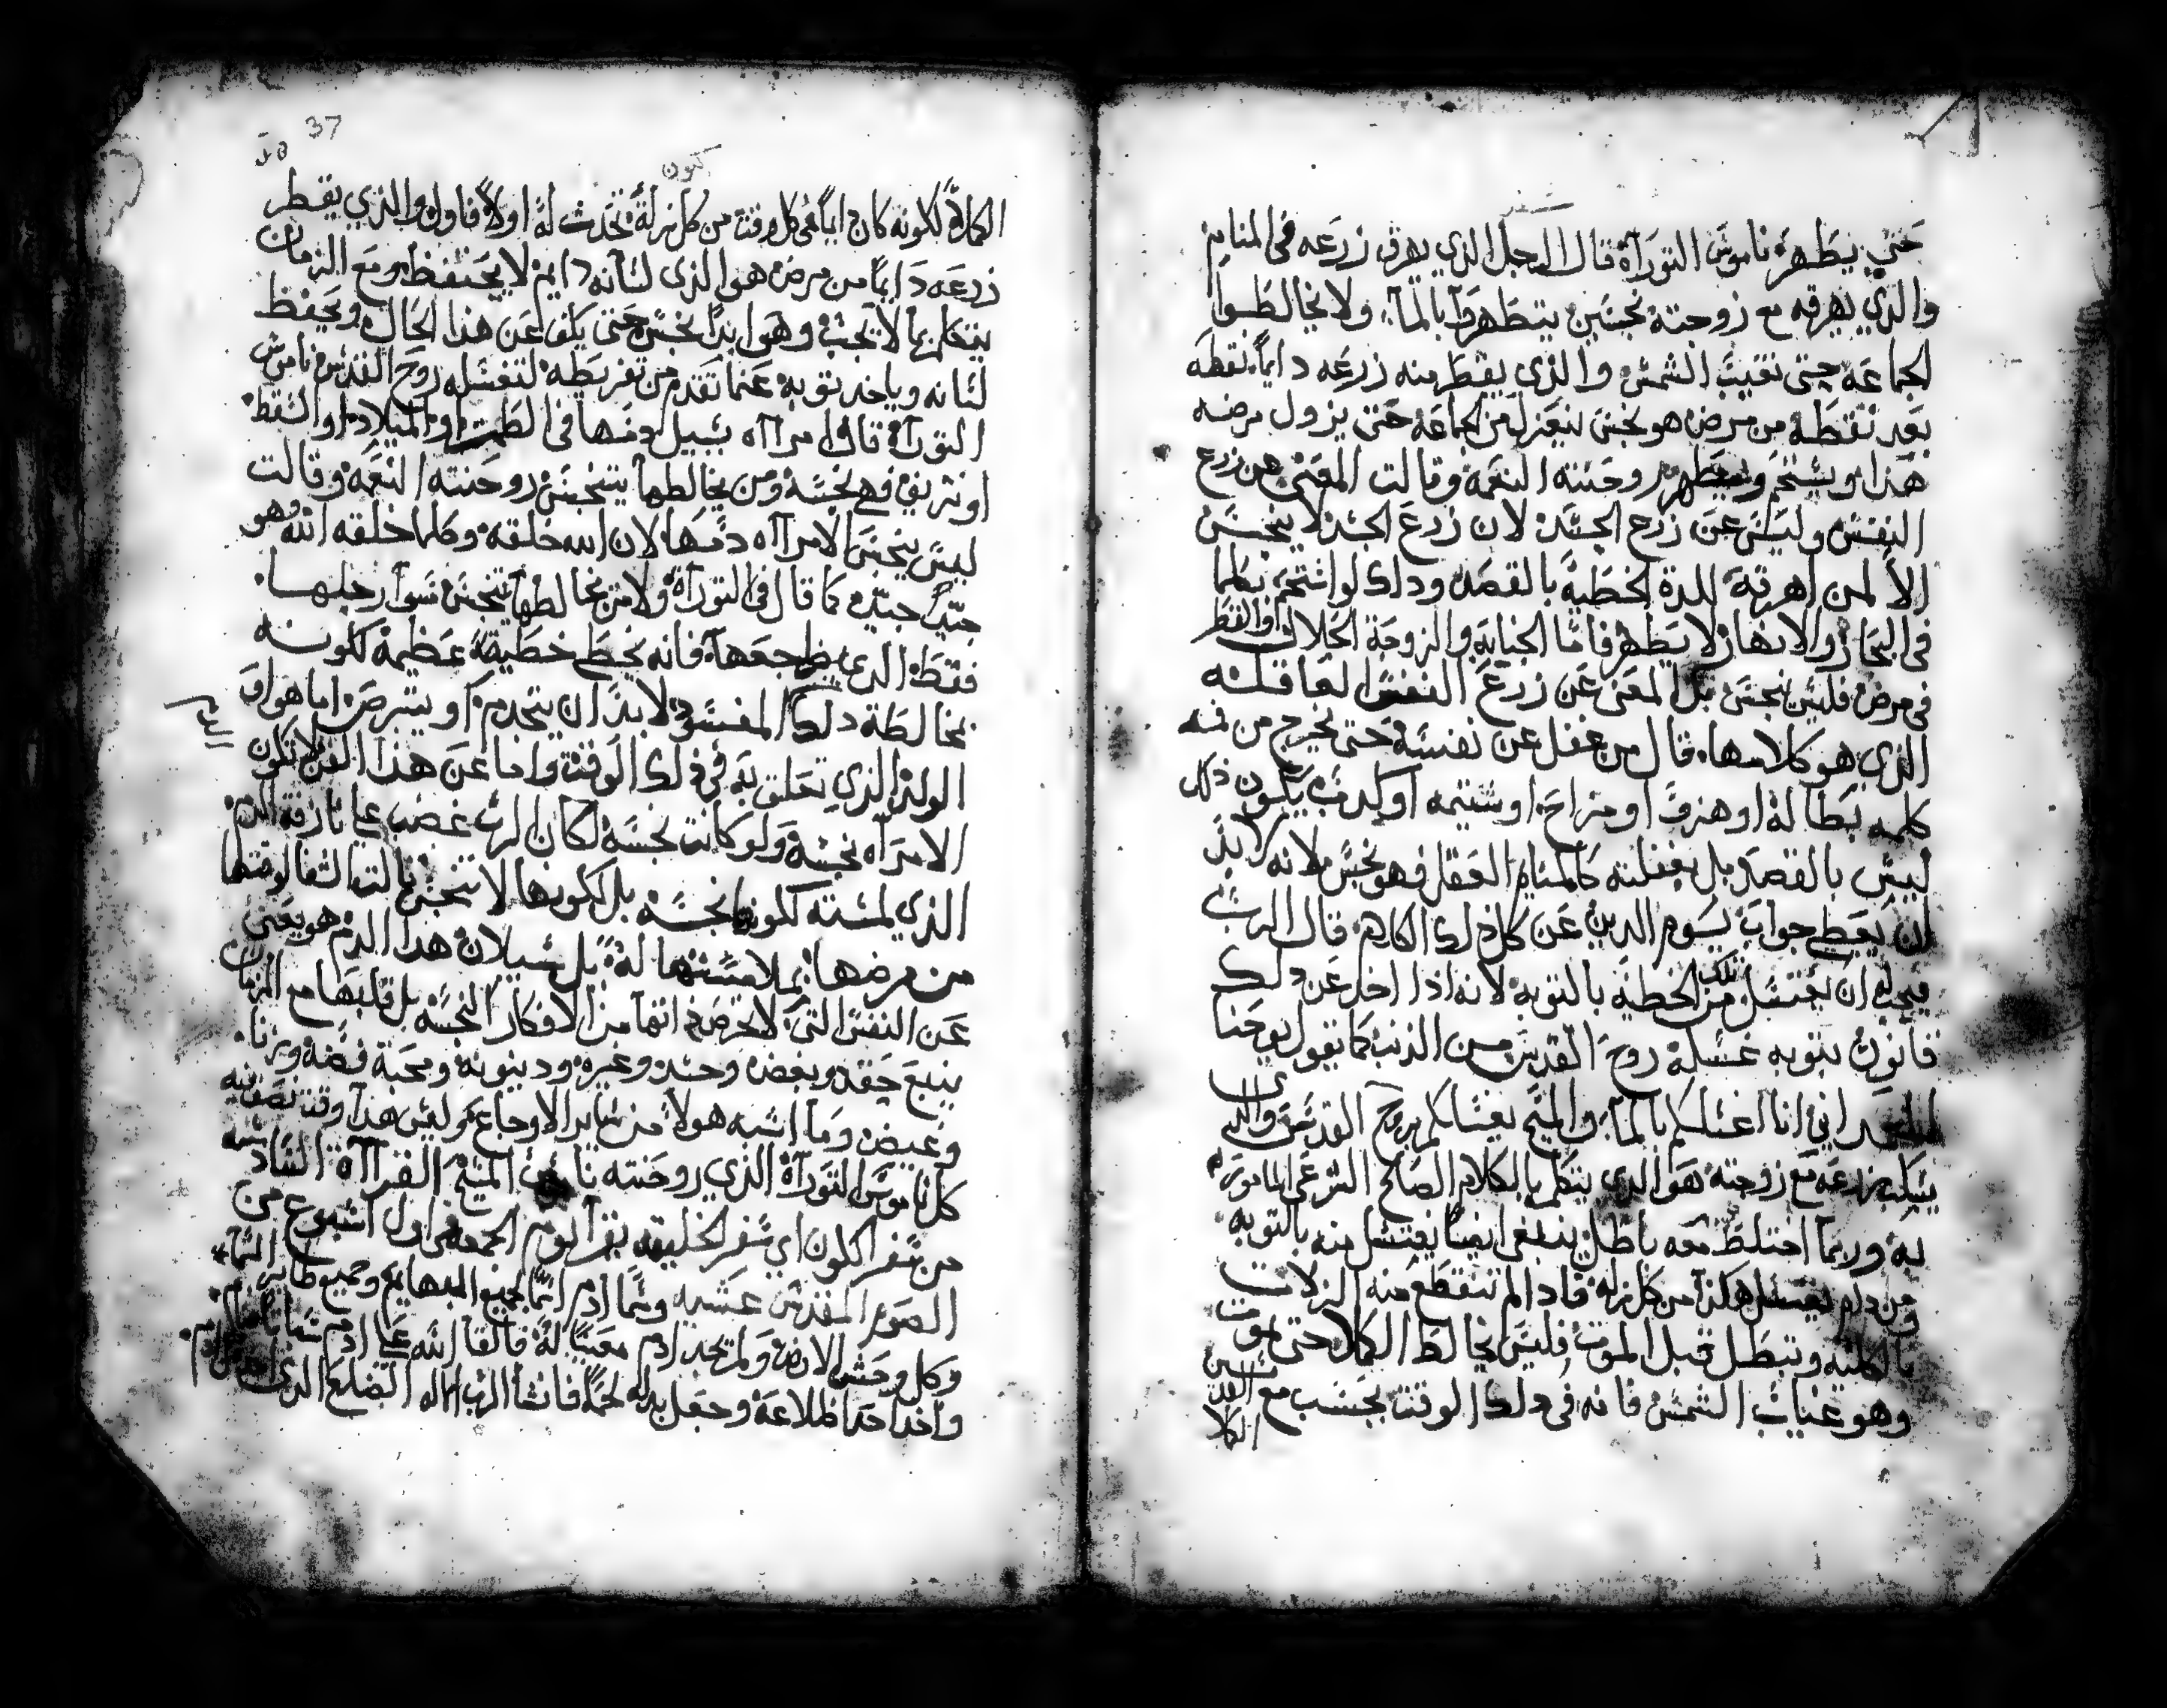 سفر
حتي يطهر ناموس التوراة قال الرجل الذي يهرق زرعه في المنام
والذي يهرقه مع زوجته نجسين يتطهروا بالما ولا يخالطوا
الجماعة حتى تغيب الشمس والذي يقطر منه زرعه دايما نقطه
بعد نقطة من مرض هو نجس ليعتزل من الجماعه حتى يزول مرضه
هذا ويستحم ويتطهر روحنته النعمه وقالت المعنى عن زرع
النفس وليس عن زرع الجسد لان زرع الجسد لا ينجس
الا لمن اهرقه للذة الخطية بالقصد وداك لو استحم بكلما
في البحار والانهار لا يطهر فاما الجنابه والزوجة الحلال او القطر
في مرض فليس نجس بل المعنى عن زرع النفس العاقله
الذي هو كلامها قال من غفل عن نفسه حتى يخرج من فمه
كلمه بطالة او هزو او مزاح او شتيمه او كدب يكون ذلك
ليس بالقصد بل بغفلته كالمنام العقل فهو نجس لانه لا بد
ان يعطي جواب يوم الدين عن كل ذلك الكلام قال الرب
فيجب له ان يغتسل من تلك الخطية بالتوبة لانه اذا اخد عن دلك
قانون بتوبه غسله روح القدس من الذنب كما يقول يوحنا
اني انا اغسلكم بالما والمسيح يغسلكم بروح القدس والذي
يسكب زرعه مع زوجته هو الدي يتكلم بالكلام الصالح الشرعي المامور
به وربما اختلط معه باطل ينبغي ايضا يغتسل منه بالتوبه
ومن دام يغتسل هكذا من كل زله فاد الم تنقطع منه الزلات
بالكليه وتبطل قبل الموت فليس يخالط الكمال حتى يموت
وهو غياب الشمس فانه في دلك الوقت يحسب مع القديسين
الكلا
37
كون
الكمالا لكونه كان ايبا في كل وقت من كل زلة تحدث له اولا فاول والذي يقطر
زرعه دايما من مرض هو الذي لسانه دايم لا يحتفظ ومع الزمان
يتكلم بما لا يجب وهو ابدا نجس حتى يكف عن هذا الحال ويحفظ
لسانه وياخد توبه عنما تقدم من تفريطه لتغسله روح القدس ناموس
التوراة قال امراه يسيل دمها في الطمت او الميلاد او السقط
او نزيف فهي نجسه ومن يخالطها يتنجس روحنته النعمه وقالت
ليس ينجس الامراه دمها لان الله خلقه وكلما خلقه الله هو
جيد جيد كما قال في التوراة ولا من يخالطها يتنجس سوا رجلها
فقط الدي يضطجعها فانه يخطي خطية عظيمه لكونه
يخالطة دلك المفسود لا بد ان يتجدم او يتبرص اما هو او
الولد الذي تعلق به في ذلك الوقت واما عن هذا الفن لا تكون
الدم
الامراه نجسه ولو كانت نجسه لكان الرب غضب علي نازفة الدم
الذي لمسته لكونها نجسه بل لكونها لا تنجس نالت الشفا لوقتها
من مرضها بملامستها له بل سيلان هدا الدم هو يعني
عن النفس التي لا تحرص داتها من الافكار النجسه بل قلبها مع الزمان
ينبع حقد وبغض وحسد وغيره ودينونه ومحبة فضه وزنا
وغيض وما اشبه هولا من ساير الاوجاع وليس هذا وقت نصف فيه
كل ناموس التوراة الذي روحنته ناموس المسيح القراة السادسه
من سفر الكون اي سفر الخليقه تقرا يوم الجمعه في اول اسبوع من
الصوم المقدس عشيه وسما ادم اسما لجميع البهايم وجميع طاير السما
وكل وحش الارض ولم تجد ادم معينا له فالقا الله علي ادم سباتا فنام
واخد احد اظلاعه وجعل بدله لحما فانشا الرب الاله الضلع الدي